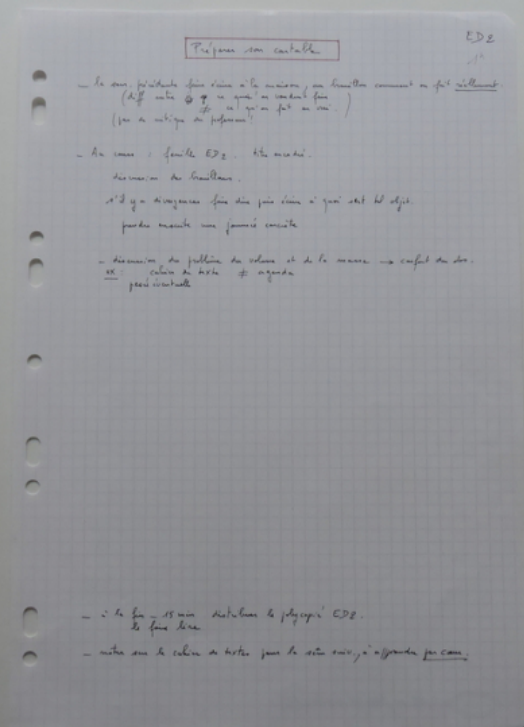 ED2
Préparer son cartable
- la séance précédente faire écrire à la maison, au brouillon comment on fait réellement.
(diff entre ce que l'on voudrait faire
≠ ce qu'on fait en vrai.)
(pas de critique du professeur!
- Au cours : feuille ED2. titre encadré.
discussion des brouillons.
s'il y a divergences faire dire puis écrire à quoi sert tel objet.
prendre ensuite une journée concrète
- discussion du problème du volume et de la masse → confort du dos.
ex : cahier de texte ≠ agenda
pesée éventuelle
- à la fin - 15 min distribuer le polycopié ED2.
le faire lire
- mettre sur le cahier de textes pour la séance suiv., à apprendre par cœur.